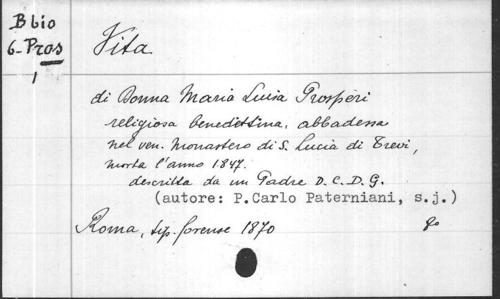 B bio
6-Pros
1
Vita
di Donna Maria Luisa Prosperi
religiosa benedettina, abbadessa
nel ven. monastero di S. Lucia di Trevi,
morta l'anno 1847.
descritta da un Padre D.C.D.G.
(autore: P.Carlo Paterniani, s.j.)
Roma, tip. forense 1870